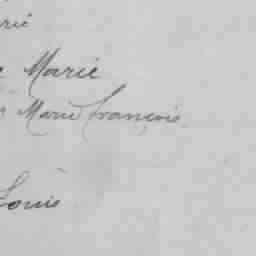 Marie
Marie François
Louis